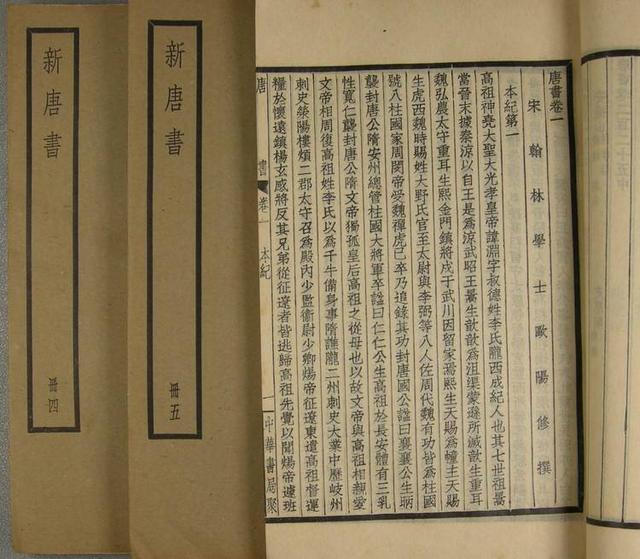 新唐書
冊四
新唐書
冊五
唐書卷一
宋翰林學士歐陽修撰
本紀第一
高祖神堯大聖大光孝皇帝諱淵字叔德姓李氏隴西成紀人也其七世祖暠
當晉末據秦涼以自王是為涼武昭王暠生歆歆為沮渠蒙遜所滅歆生重耳
魏弘農太守重耳生熙金門鎮將戍于武川因留家焉熙生天賜為幢主天賜
生虎西魏時賜姓大野氏官至太尉與李弼等八人佐周代魏有功皆為柱國
號八柱國家周閔帝受魏禪虎已卒乃追錄其功封唐國公謚曰襄襄公生昞
襲封唐公隋安州總管柱國大將軍卒謚曰仁仁公生高祖於長安體有三乳
性寬仁襲封唐公隋文帝獨孤皇后高祖之從母也以故文帝與高祖相親愛
文帝相周復高祖姓李氏以為千牛備身事隋譙隴二州刺史大業中歷岐州
刺史滎陽樓煩二郡太守召為殿內少監衛尉少卿煬帝征遼東遣高祖督運
糧於懷遠鎮楊玄感將反其兄弟從征遼者皆逃歸高祖先覺以聞煬帝遽班
唐書 卷一 本紀 一 中華書局聚